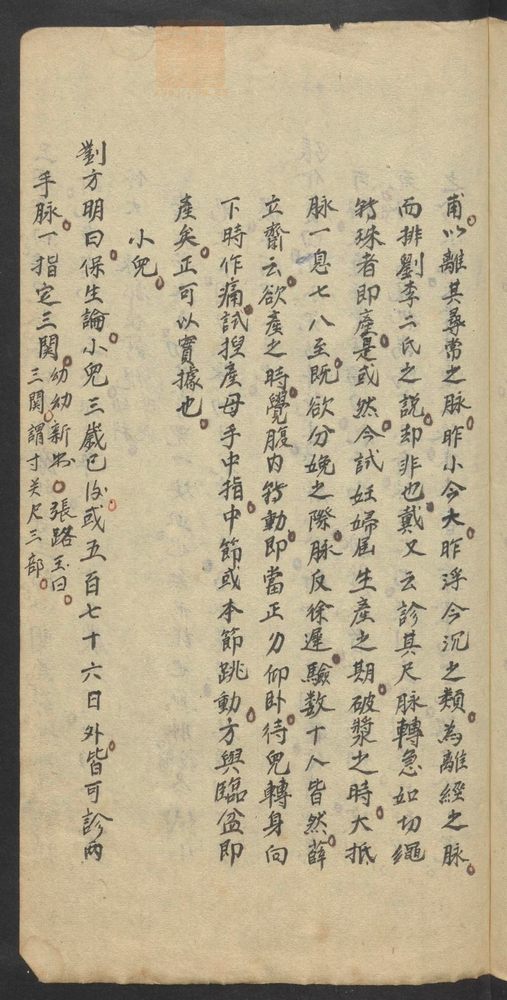 甫以離其尋常之脉昨小今大昨浮今沉之類為離經之脉
而排劉李二氏之説却非也戴又云診其尺脉轉急如切繩
轉珠者即產是或然今試妊婦屆生產之期破漿之時大抵
脉一息七八至既欲分娩之際脉反徐遲驗数十人皆然薛
立齋云欲產之時覺腹内轉動即當正身仰卧待兒轉身向
下時作痛試揑產母手中指中節或本節跳動方與臨盆即
產矣正可以實據也
小兒
劉方明曰保生論小兒三歲已後或五百七十六日外皆可診兩
手脉一指定三関幼幼新書張路玉曰
三関謂寸关尺三部